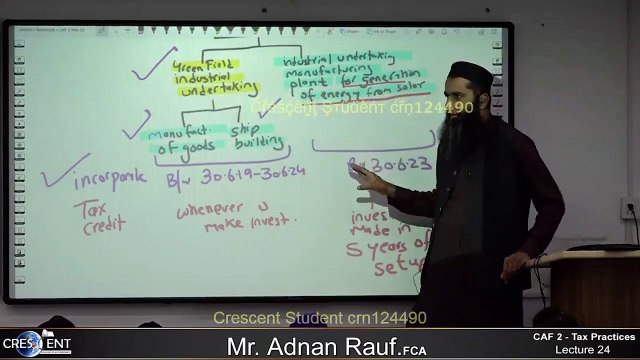 Green Field
industrial
undertaking
industrial undertaking
manufacturing
plant for generation
of energy from solar
Crescent Student crn124490
manufact.
of goods
ship
building
incorporate
B/w 30.6.19-30.6.24
B/w 30.6.23
Tax
Credit
whenever
make invest.
inves
made in
5 years of
setup
Crescent Student crn124490
CRESCENT
Mr. Adnan Rauf.FCA
CAF 2 - Tax Practices
Lecture 24